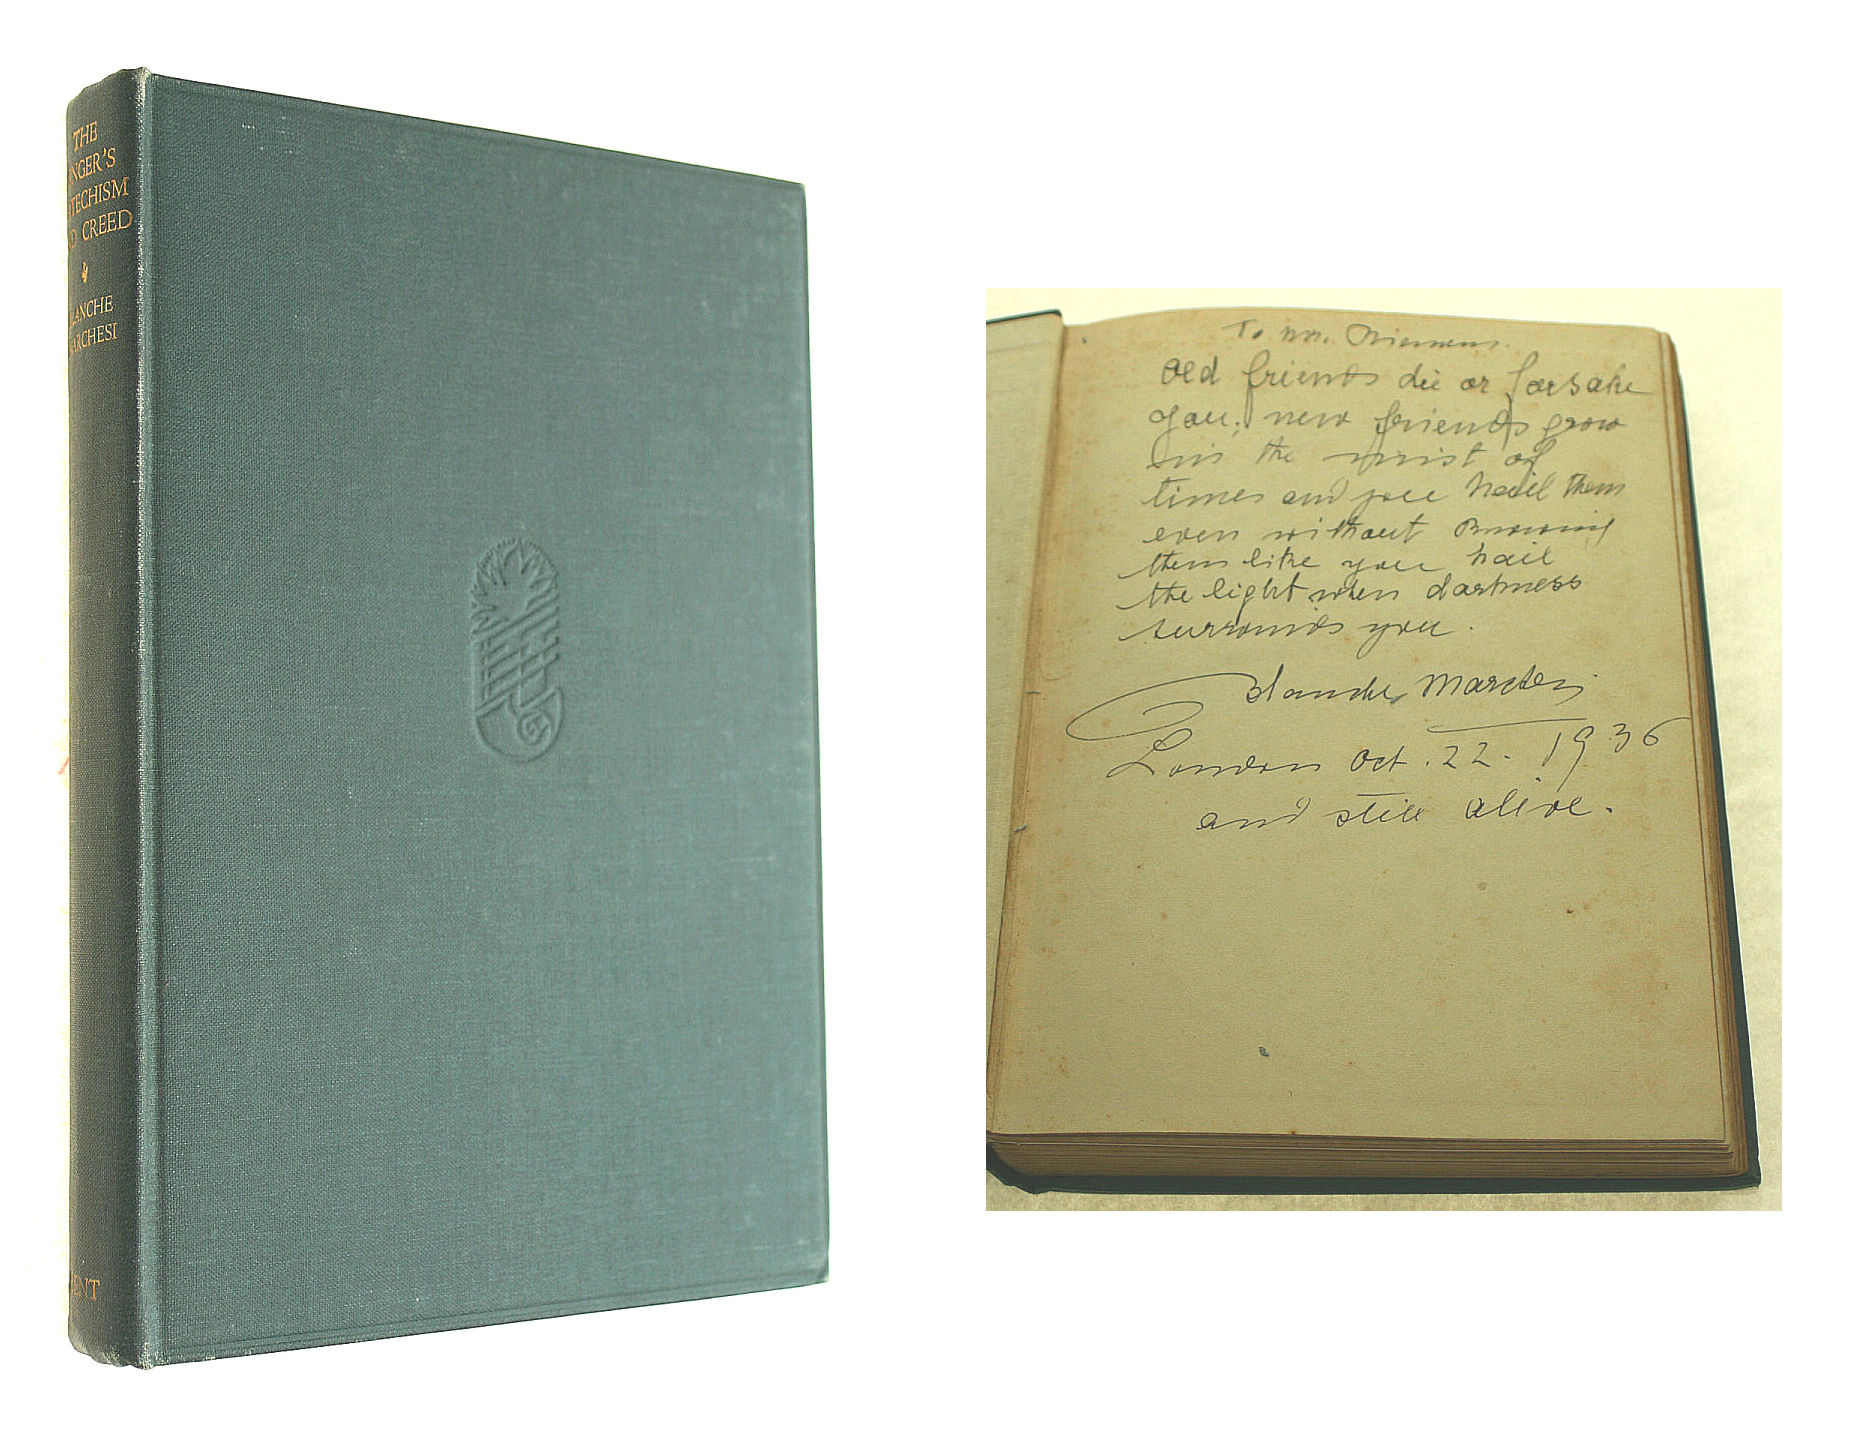 THE
NGER'S
TECHISM
D CREED
LANCHE
ARCHESI
ENT
To
Old friends die or forsake
you, new friends grow
in the mist of
times and you hail them
even without knowing
them like you hail
the light when darkness
surrounds you.
Blanche Marchesi
London Oct. 22. 1936
and still alive.